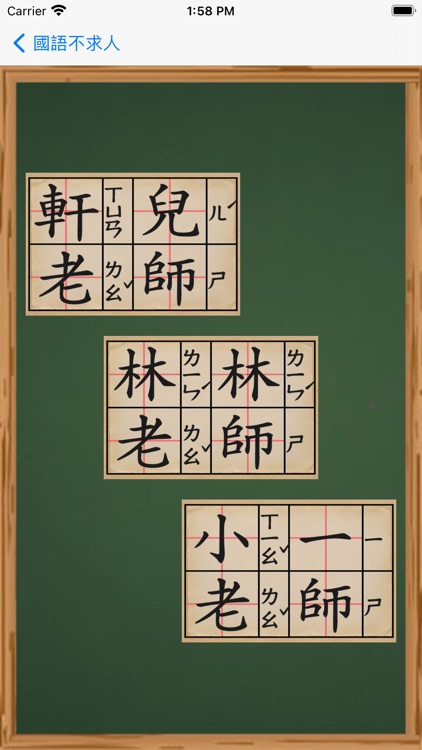 Carrier 1:58 PM
國語不求人
軒ㄒㄩㄢ兒ㄦˊ
老ㄌㄠˇ師ㄕ
林ㄌㄧㄣˊ林ㄌㄧㄣˊ
老ㄌㄠˇ師ㄕ
小ㄒㄧㄠˇ一ㄧ
老ㄌㄠˇ師ㄕ